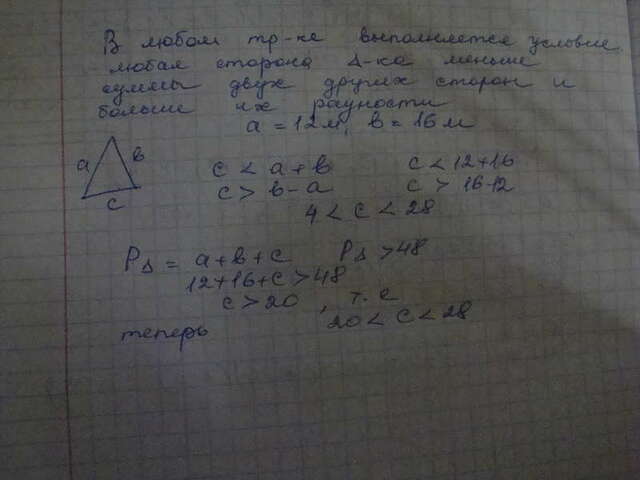 В любом тр-ке выполняется условие,
любая сторона Δ-ка меньше
суммы двух других сторон и
больше их разности
a = 12м, в = 16м
a в c
c < a + в c < 12+16
c > в - a c > 16-12
4 < c < 28
PΔ = a + в + c PΔ > 48
12+16+c > 48
c > 20 , т. е
теперь 20 < c < 28